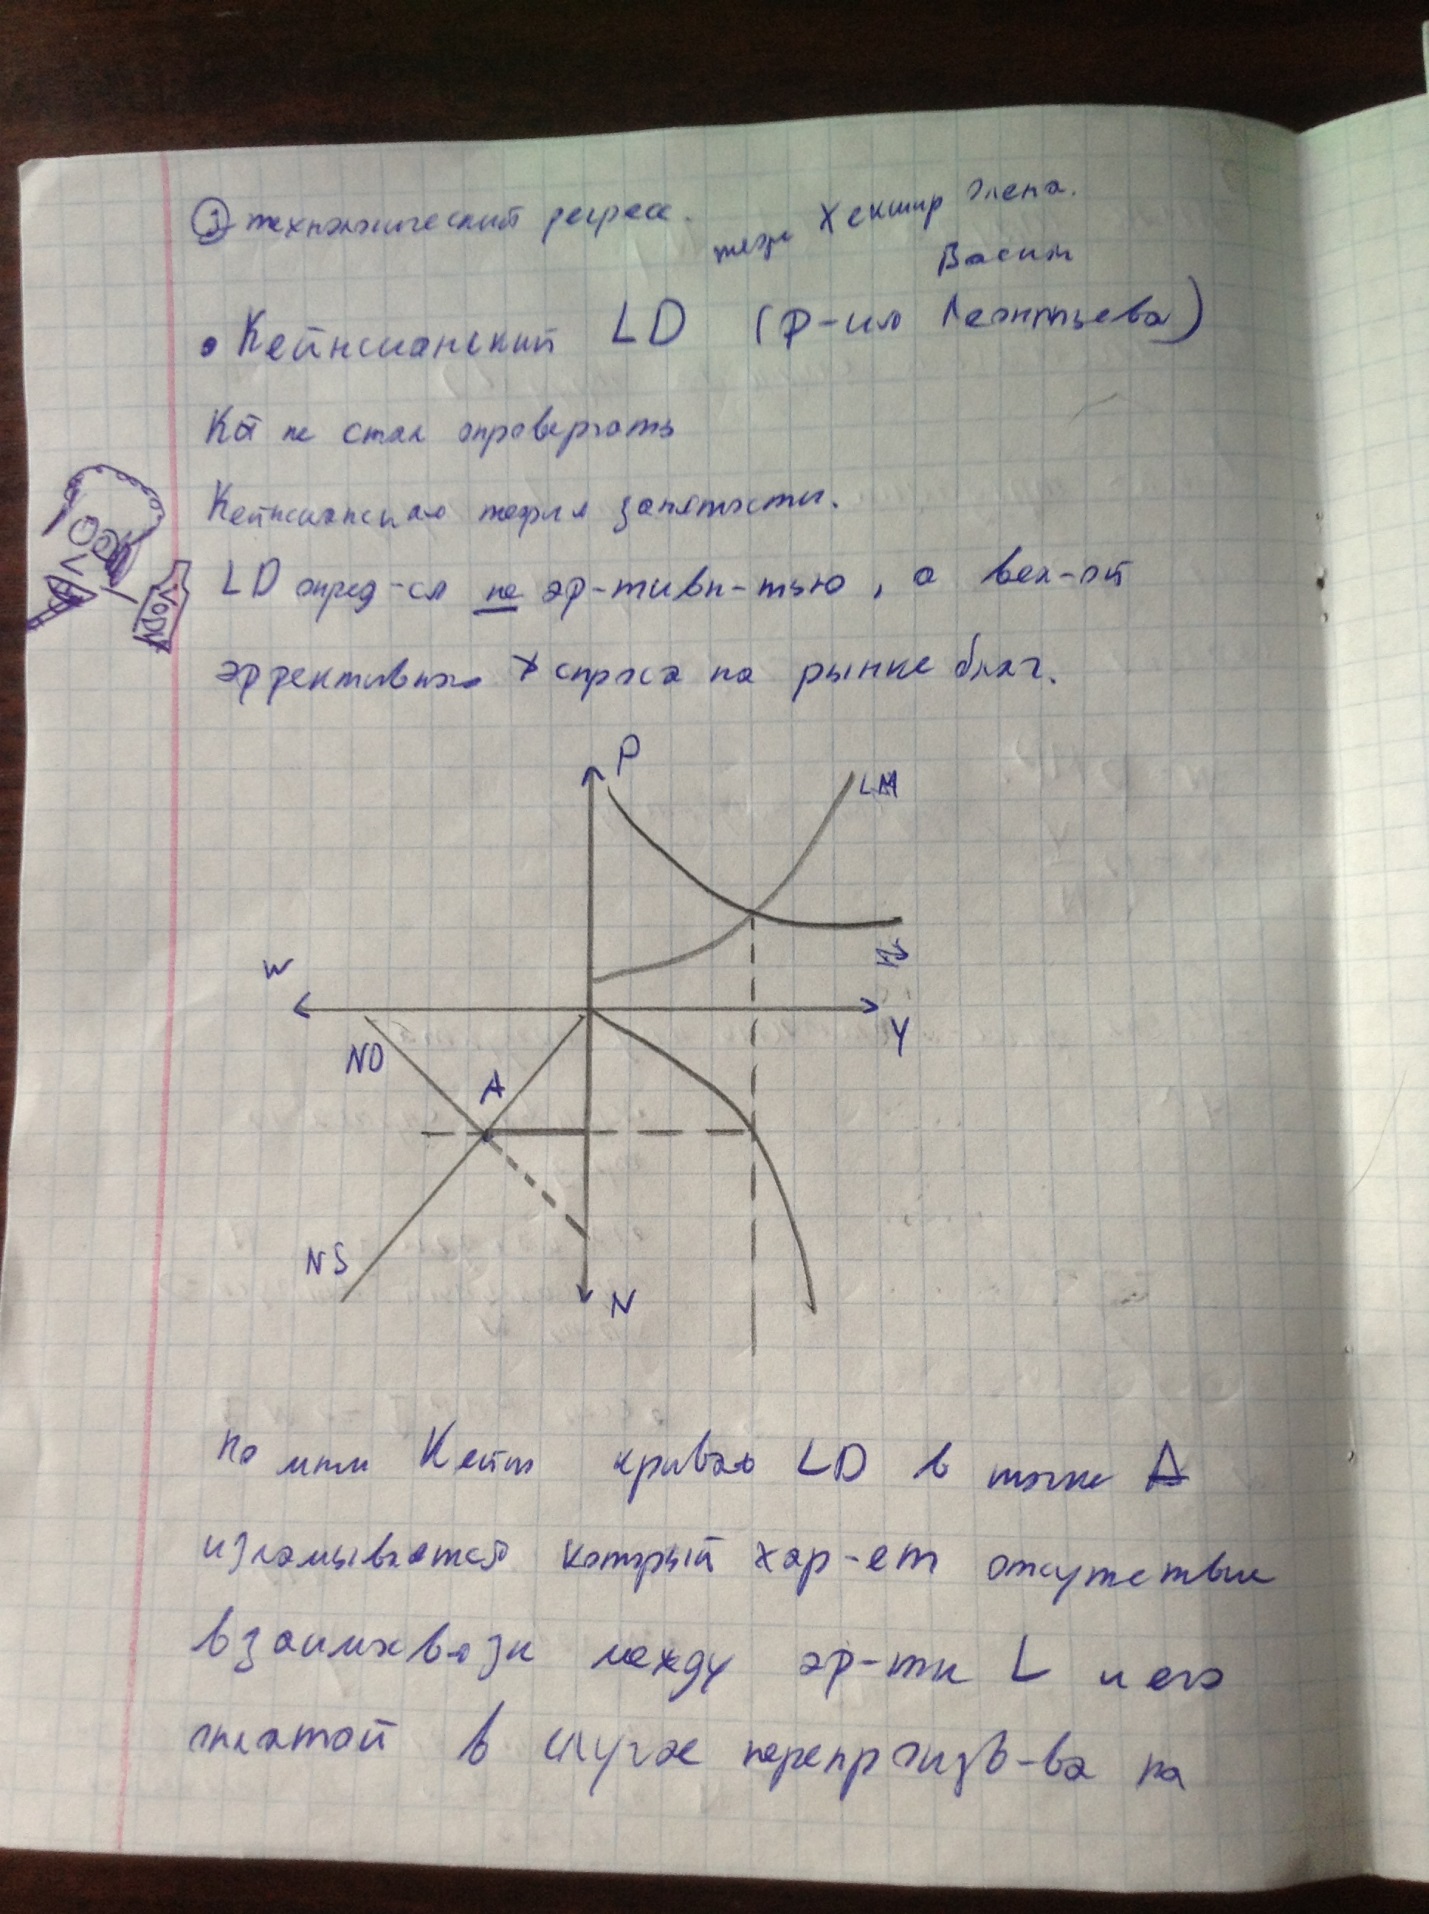 ③ технологический регресс.
теор Хекшир Олена.
Васил
• Кейнсианский LD (ф-ия Леонтьева)
Кй не стал опровергать
Кейнсианская теория занятости.
LD опред-ся не эф-тивн-тью, а вел-ой
эффективного спроса на рынке благ.
P
LM
W
Y
ND
A
NS
N
По мнен Кейнс кривая LD в точке А
изламывается который хар-ет отсутствие
взаимосвязи между эф-ти L и его
оплатой в случае перепроизв-ва на